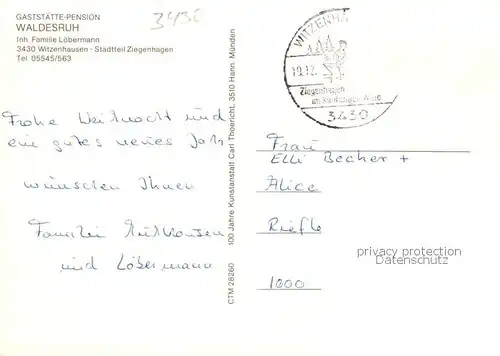 GASTSTÄTTE-PENSION
WALDESRUH
Inh. Familie Löbermann
3430 Witzenhausen - Stadtteil Ziegenhagen
Tel. 05545/563
3430
WITZENHA
19.12.
Ziegenhagen
3430
Frohe Weihnacht und
ein gutes neues Jahr
wünschen Ihnen
Familie
und Löbermann
100 Jahre Kunstanstalt Carl Thoericht, 3510 Hann. Münden
CTM 28260
Frau
Elli Becher +
Alice
Riefle
1000
privacy protection
Datenschutz